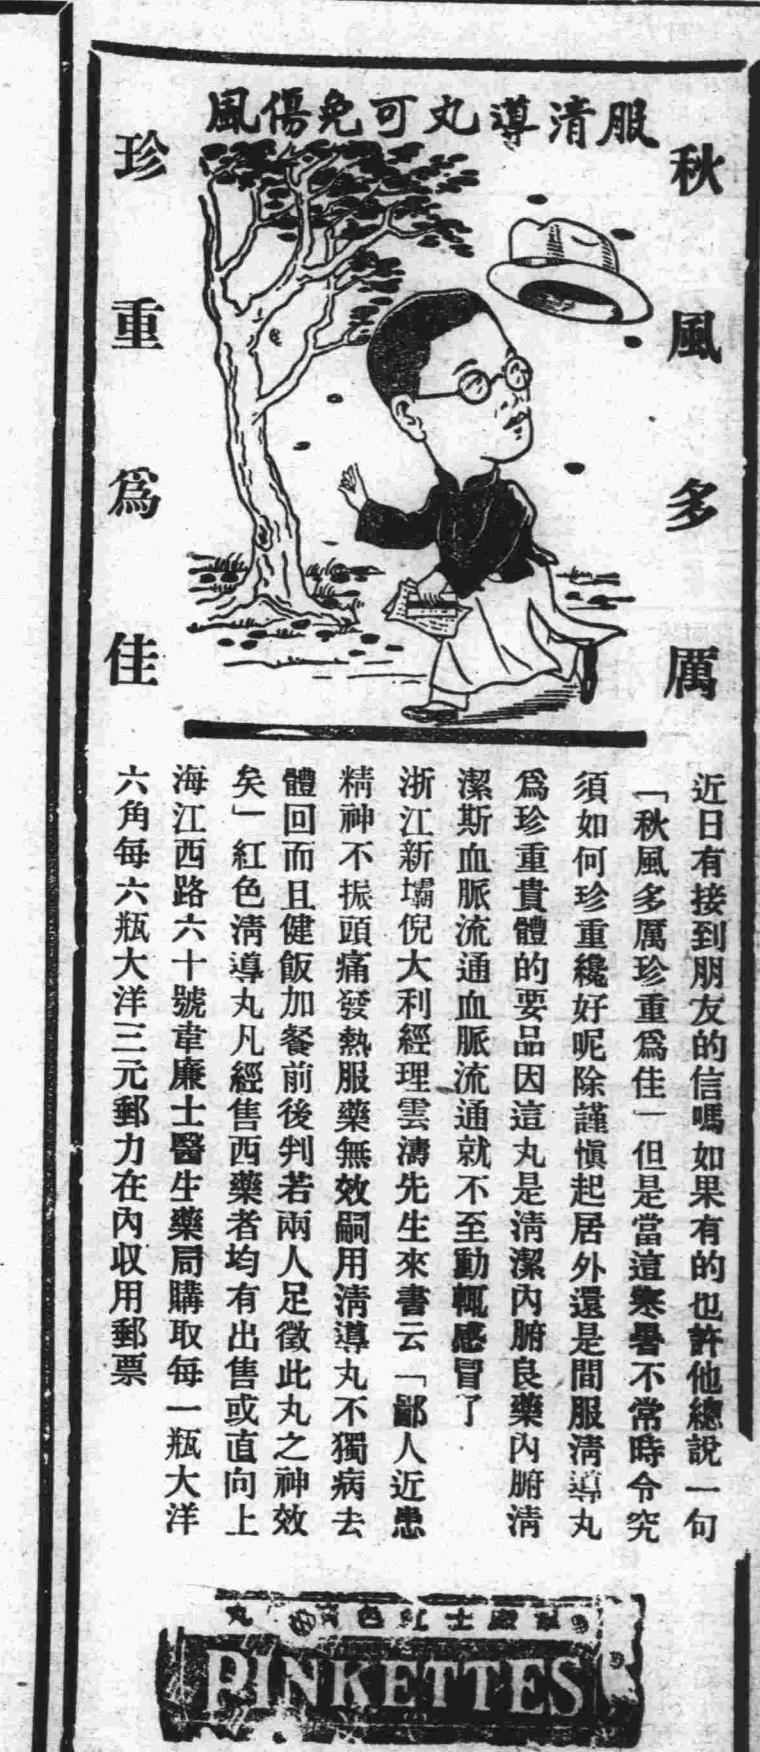 服清導丸可免傷風
秋風多厲
珍重爲佳
近日有接到朋友的信嗎如果有的也許他總說一句
「秋風多厲珍重爲佳」但是當這寒暑不常時令究
須如何珍重纔好呢除謹愼起居外還是間服淸導丸
爲珍重貴體的要品因這丸是淸潔內腑良藥內腑淸
潔斯血脈流通血脈流通就不至動輒感冒了
浙江新壩倪大利經理雲濤先生來書云「鄙人近患
精神不振頭痛發熱服藥無效嗣用淸導丸不獨病去
體回而且健飯加餐前後判若兩人足徵此丸之神效
矣」紅色淸導丸凡經售西藥者均有出售或直向上
海江西路六十號韋廉士醫生藥局購取每一瓶大洋
六角每六瓶大洋三元郵力在內收用郵票
士紅色淸丸
PINKETTES